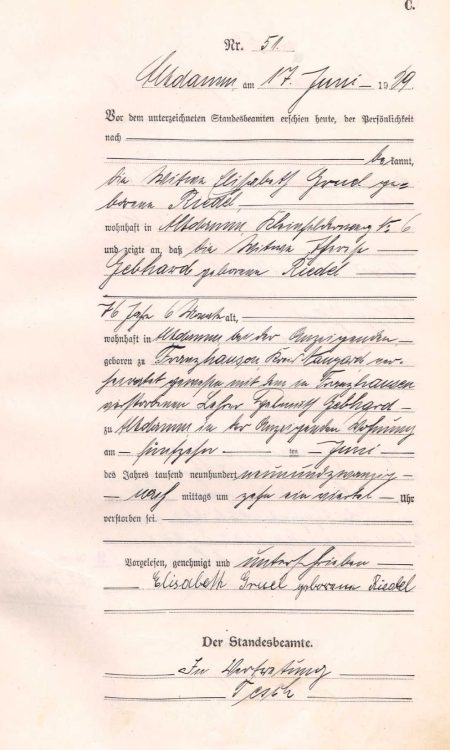 C.
Nr. 51.
Altdamm am 17. Juni 1929.
Vor dem unterzeichneten Standesbeamten erschien heute, der Persönlichkeit
nach
bekannt,
die Witwe Elisabeth Gruel ge-
borene Riedel
wohnhaft in Altdamm 6
und zeigte an, daß die Witwe
Gebhard geborene Riedel
76 Jahre 6 Monate alt,
wohnhaft in Altdamm bei der Anzeigenden
geboren zu Franzhausen Kreis Naugard ver-
heiratet gewesen mit dem in Franzhausen
verstorbenen Lehrer Gebhard
zu Altdamm in der Anzeigenden Wohnung
am fünfzehn ten Juni
des Jahres tausend neunhundert neunundzwanzig
nach mittags um zehn ein viertel Uhr
verstorben sei.
Vorgelesen, genehmigt und unterschrieben
Elisabeth Gruel geborene Riedel
Der Standesbeamte.
In Vertretung